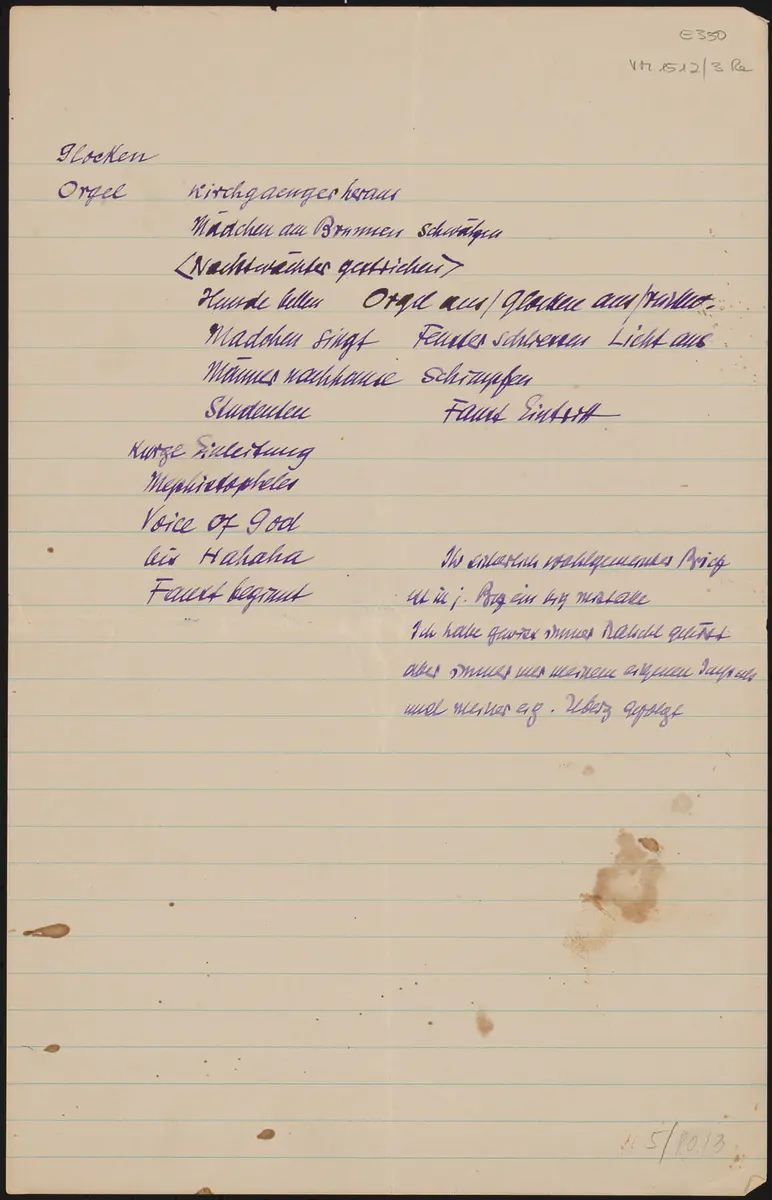 E350
VM 1512/3 Re
Glocken
Orgel Kirchgaenger heraus
Mädchen am Brunnen schwätzen
<Nachtwächter gestrichen>
Hunde bellen Orgel aus/ Glocken aus/
Mädchen singt Fenster schliessen Licht aus
Männer nachhause schimpfen
Studenten Faust Eintritt
Kurze Einleitung
Mephistopheles
Voice of God
bis Hahaha
Faust beginnt
Ihr sicherlich wohlgemeinter Brief
ist in j. Bez ein big mistake
Ich habe gewiss immer
aber immer nur meinem eigenen Impuls
und meiner eig. Überz gefolgt
5/